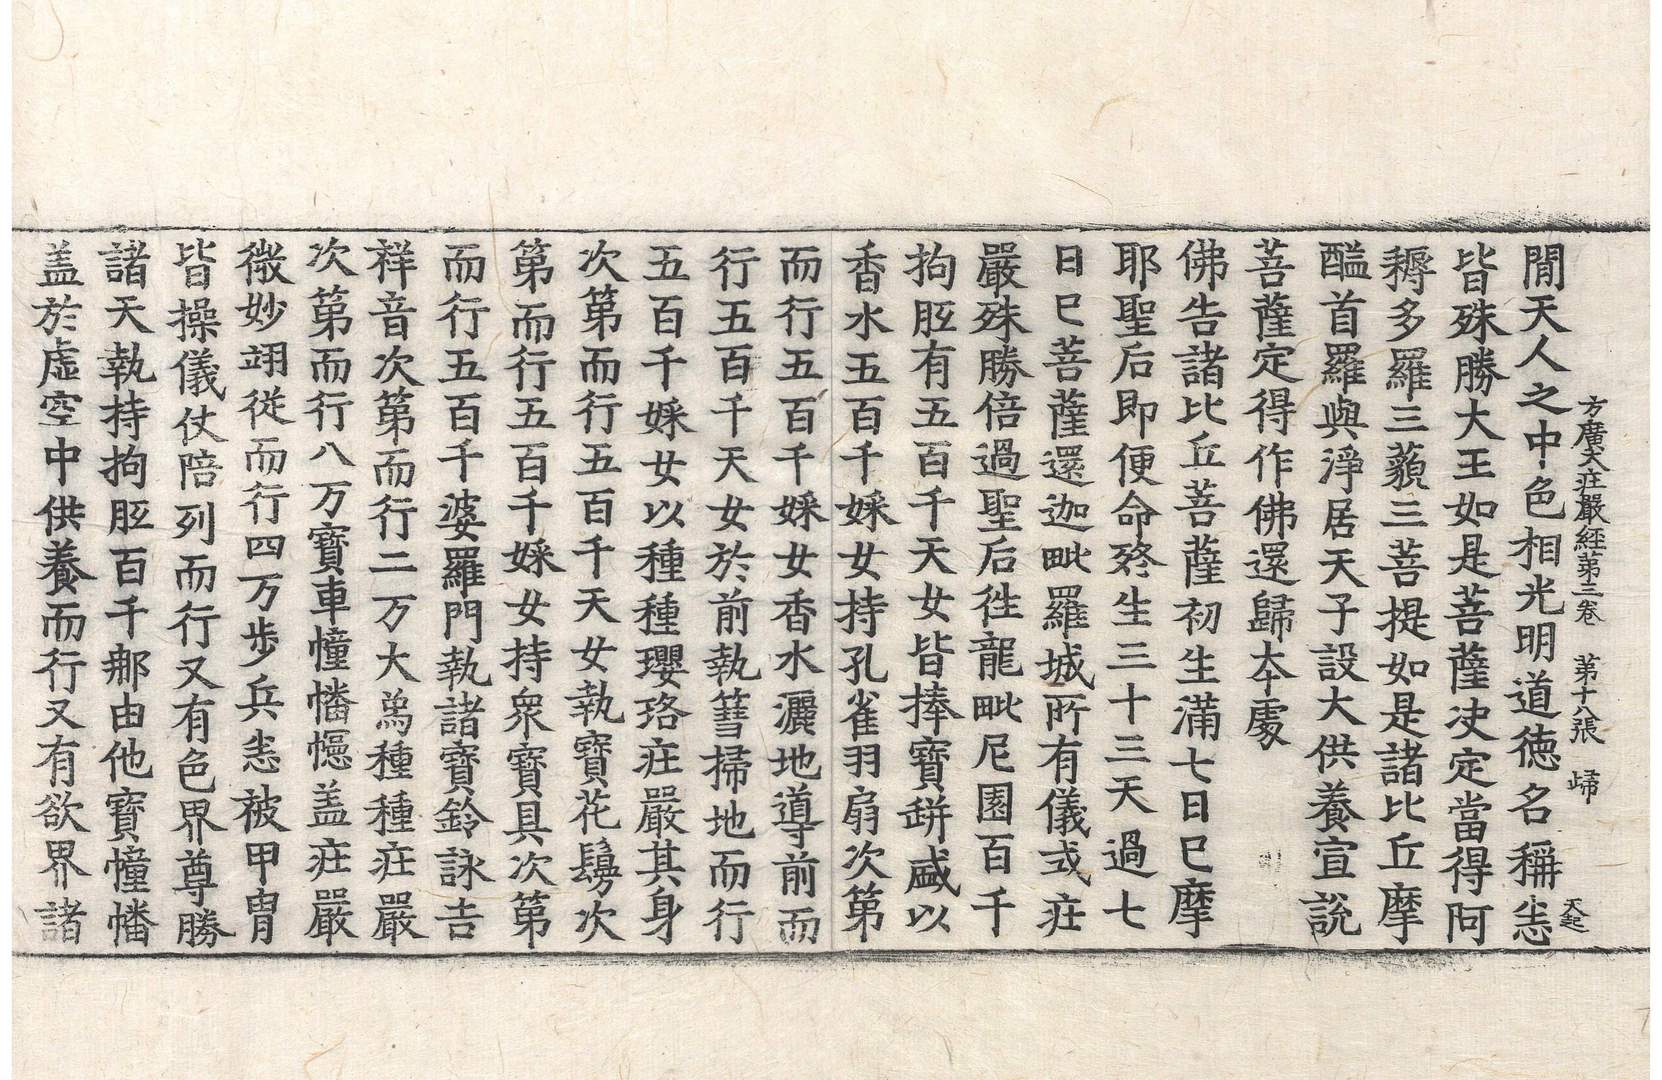 方廣大莊嚴經第三卷 第十八張 歸 天起
間天人之中色相光明道德名稱悉
皆殊勝大王如是菩薩决定當得阿
耨多羅三藐三菩提如是諸比丘摩
醯首羅與淨居天子設大供養宣說
菩薩定得作佛還歸本處
佛告諸比丘菩薩初生滿七日已摩
耶聖后即便命終生三十三天過七
日已菩薩還迦毗羅城所有儀式莊
嚴殊勝倍過聖后往龍毗尼園百千
拘胝有五百千天女皆捧寶缾盛以
香水五百千婇女持孔雀羽扇次第
而行五百千婇女香水灑地導前而
行五百千天女於前執篲掃地而行
五百千婇女以種種瓔珞莊嚴其身
次第而行五百千天女執寶花鬘次
第而行五百千婇女持衆寶具次第
而行五百千婆羅門執諸寶鈴詠吉
祥音次第而行二万大爲種種莊嚴
次第而行八万寶車幢幡幰盖莊嚴
微妙翊從而行四万步兵悉被甲胄
皆操儀仗陪列而行又有色界尊勝
諸天執持拘胝百千那由他寶幢幡
盖於虛空中供養而行又有欲界諸